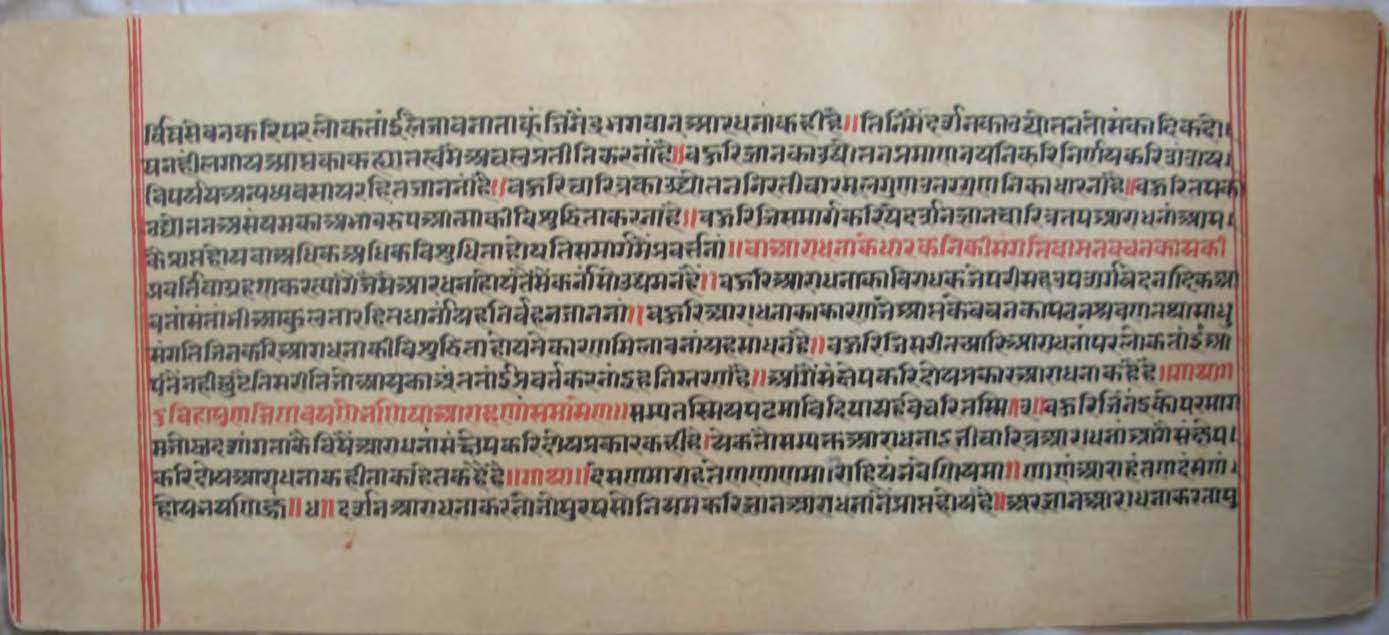 र्विघ्नसेवनकरिपरलोकतांईलेजावनाताकूंजिनेंद्रभगवानआराधनाकहीहै॥तिनिमेंदर्शनकाउद्योतनतोसंकादिकदो।
यनहीलगायआप्तकाकह्यातत्वमेंअचलप्रतीतिकरनांहै॥बहुरिज्ञानकाउद्योतनप्रमाणनयनिकरिनिर्णयकरिसंशय।
विपर्ययअनध्यवसायरहितजाननांहै॥बहुरिचारित्रकाउद्योतननिरतीचारमूलगुणउत्तरगुणनिकाधारनांहै॥बहुरितपका
उद्योतनअसंयमकाअभावरूपआत्माकीविशुद्धिताकरनांहै॥बहुरिजिसमार्गकरियेदर्शनज्ञानचारित्रतपआराधनांआप।
केप्राप्तहोयवाअधिकअधिकविशुधिताहोयतिसमार्गमेंप्रवर्त्तनां॥वाआराधनांकेधारकनिकीसंगतिवामनवचनकायकी
प्रवर्तिवाग्रहणकरत्यागेजैसेंआराधनांहोयतैसेंकर्नासोउद्यमनहै॥बहुरिआराधनाकाविराधकजेपरीसहउपसर्गवेदनादिकआ
वतांसंतांभीआकुलतारहितधार्नायहनिर्वहनजाननां॥बहुरिआराधनाकाकारणजेआप्तकेवचनकापठनश्रवणतथासाधु
संगतिजिनकरिआराधनाकीविशुद्धिताहोयतेकारणमिलावनांयहसाधनहै॥बहुरिजिसरीतआरिआराधनांपरलोकतांईआ
पनेनहीछूटैतिसरीतिजोआयुकाअंततांईप्रवर्तकरनांइहनिस्तरणहै॥आगेंसंक्षेपकरिदोयप्रकारआराधनाकहैहै॥गाथा॥
दुविहापुणजिणवयणेभणियाआराहणासमासेण॥सम्मत्तम्मियपढमाविदियायहवेचरित्तम्मि॥३॥बहुरिजिनेंद्रकोपरमाग
मजोद्वादशांगताकैविषेंआराधनांसंक्षेपकरिदोयप्रकारकहीहै।येकतोसम्यक्तआराधनाऽजीचारित्रआराधनांआगेंसंक्षेप।
करिदोयआराधनाकहीताकाहेतकहैहै॥गाथा॥दंसणमाराहंतेणणाणमाराहियंहवेणियमा॥णाणंआराहंतेणदंसणं।
होयभयणिज्जं॥४॥दर्शनआराधनाकरतोजोपुरुषसोनियमकरिज्ञानआराधनानैंप्राप्तहोयहै॥अरज्ञानआराधनाकरतापु